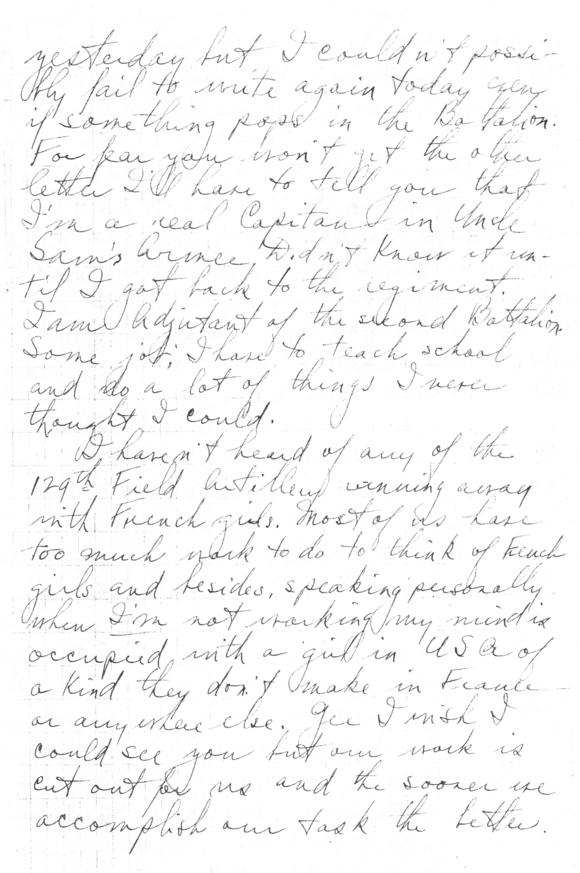 yesterday but I couldn't possi-
bly fail to write again today even
if something pops in the Battalion.
For fear you won't get the other
letter I'll have to tell you that
I'm a real Capitan in Uncle
Sam's Armee. Didn't know it un-
til I got back to the regiment.
I am Adjutant of the second Battalion.
Some job, I have to teach school
and do a lot of things I never
thought I could.
I haven't heard of any of the
129th Field Artillery running away
with French girls. Most of us have
too much work to do to think of French
girls and besides, speaking personally
when I'm not working my mind is
occupied with a girl in USA of
a kind they don't make in France
or anywhere else. Gee I wish I
could see you but our work is
cut out for us and the sooner we
accomplish our task the better.